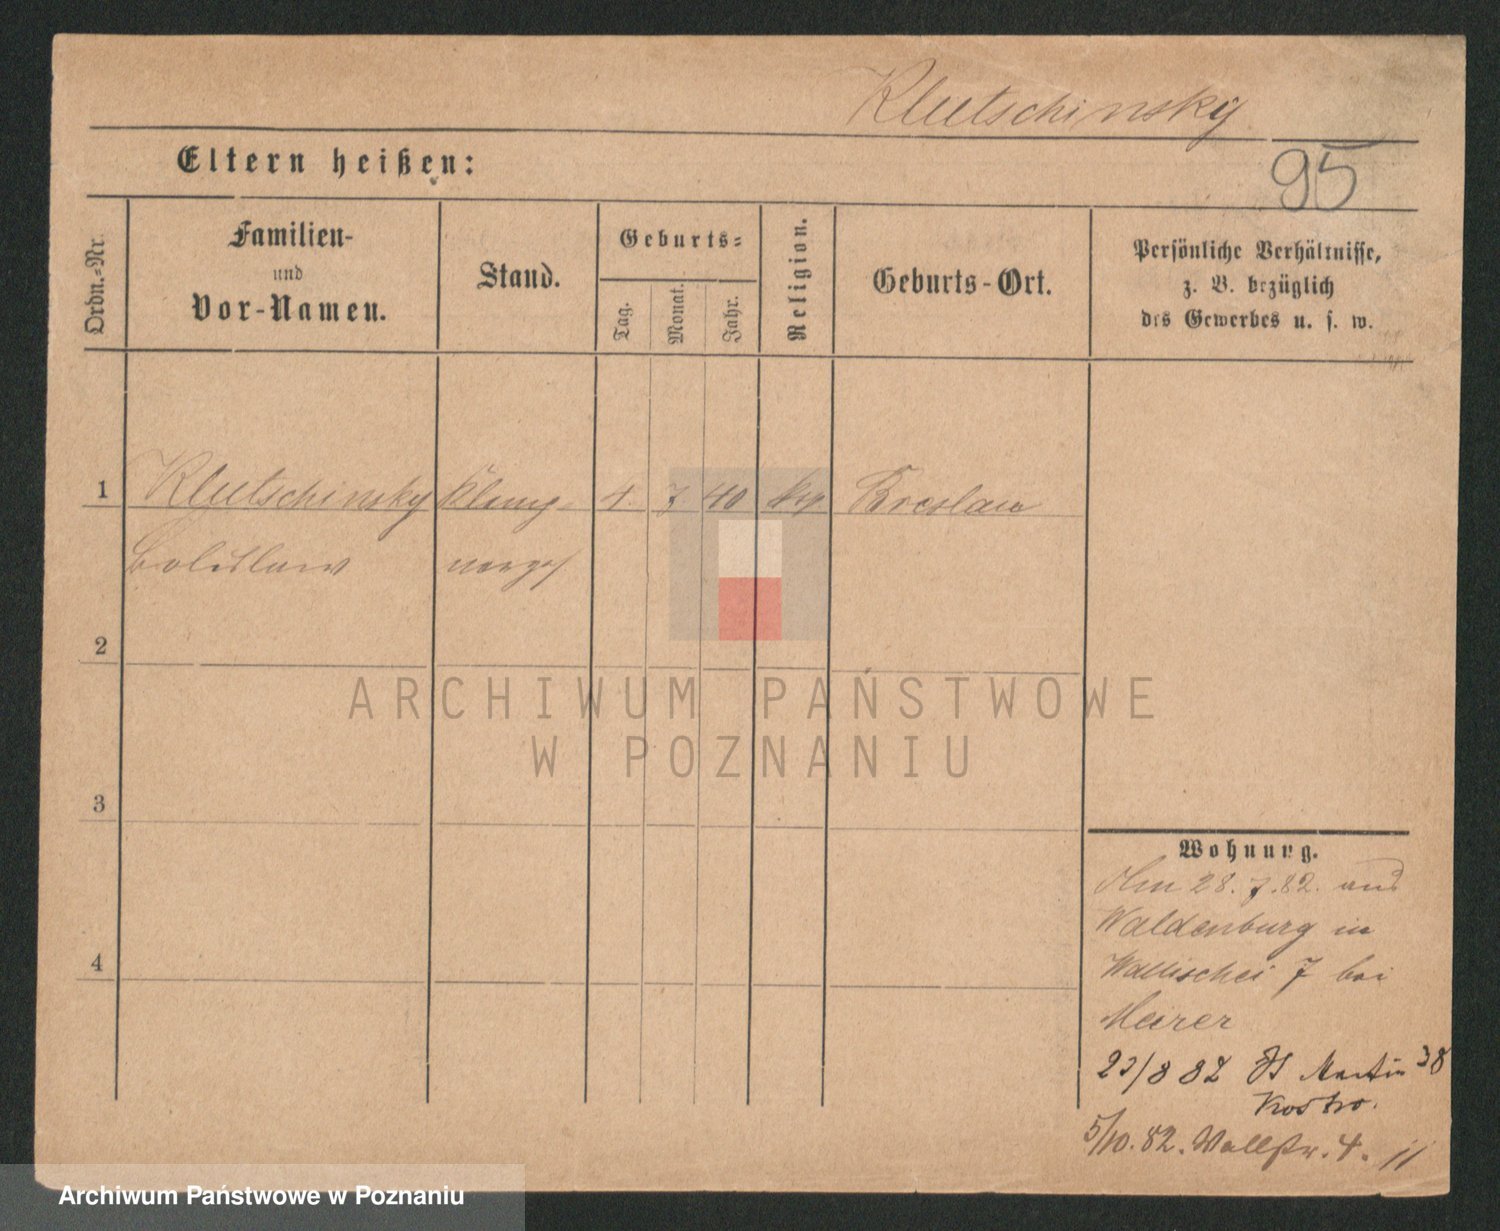 Klutschinsky
95
Eltern heißen:
Ordn.-Nr.
Familien-
und
Vor-Namen.
Stand.
Geburts-
Tag.
Monat.
Jahr.
Religion.
Geburts-Ort.
Persönliche Verhältnisse,
z. B. bezüglich
des Gewerbes u. s. w.
1 Klutschinsky Klemp- 4. 7. 40 Breslau
Boleslaw nerges.
2
3
4
Wohnung.
Am 28. 7. 82. aus
Waldenburg in
Wallischei 7 bei
Meirer
23/8 82 St Martin 38
5/10. 82. Wallstr. 4. 11
ARCHIWUM PAŃSTWOWE
W POZNANIU
Archiwum Państwowe w Poznaniu